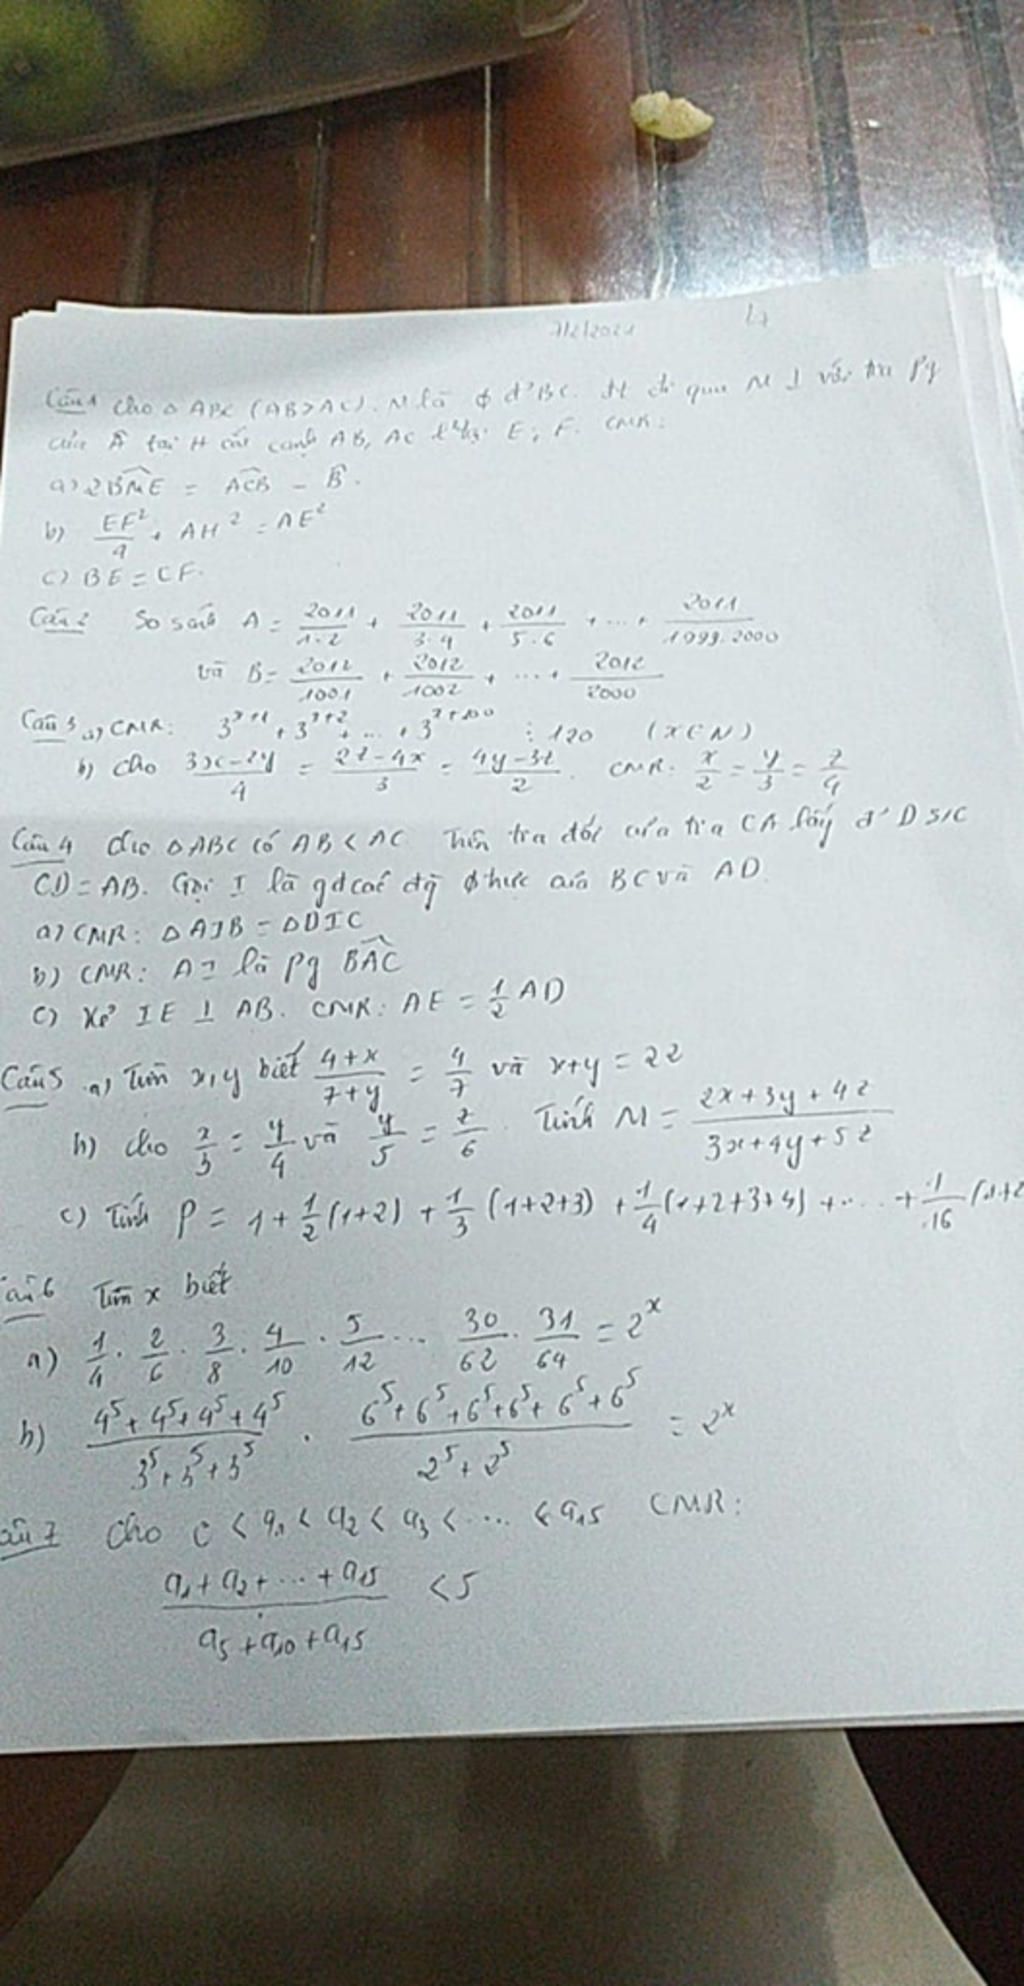 7/2/2021
Câu 1 Cho △ ABC (AB>AC). M là đ' BC. đi qua M ⊥ với tia pg
của Â tại H cắt cạnh AB, AC E, F. CMR:
a) 2BM̂E = AĈB - B̂.
b) EF²/4 + AH² = AE²
c) BE = CF.
Câu 2 So sánh A = 2011/1.2 + 2011/3.4 + 2011/5.6 + ... + 2011/1999.2000
và B = 2012/1001 + 2012/1002 + ... + 2012/2000
Câu 3 a) CMR: 3^(x+1) + 3^(x+2) + ... + 3^(x+100) ⋮ 120 (x∈N)
b) Cho (3x-2y)/4 = (2z-4x)/3 = (4y-3z)/2. CMR. x/2 = y/3 = z/4
Câu 4 Cho △ABC có AB < AC. Trên tia đối của tia CA lấy đ' D s/c
CD = AB. Gọi I là gđ của BC và AD.
a) CMR: △AIB = △DIC
b) CMR: AI là pg BÂC
c) Kẻ IE ⊥ AB. CMR: AE = 1/2 AD
Câu 5 a) Tìm x, y biết (4+x)/(7+y) = 4/7 và x+y = 22
b) Cho x/3 = y/4 và y/5 = z/6. Tính M = (2x+3y+4z)/(3x+4y+5z)
c) Tính P = 1 + 1/2(1+2) + 1/3(1+2+3) + 1/4(1+2+3+4) + ... + 1/16(1+2
Câu 6 Tìm x biết
a) 1/4 . 2/6 . 3/8 . 4/10 . 5/12 ... 30/62 . 31/64 = 2^x
b) (4⁵+4⁵+4⁵+4⁵)/(3⁵+3⁵+3⁵) . (6⁵+6⁵+6⁵+6⁵+6⁵+6⁵)/(2⁵+2⁵) = 2^x
Câu 7 Cho 0 < a₁ < a₂ < a₃ < ... < a₁₅ CMR:
(a₁+a₂+...+a₁₅)/(a₅+a₁₀+a₁₅) < 5